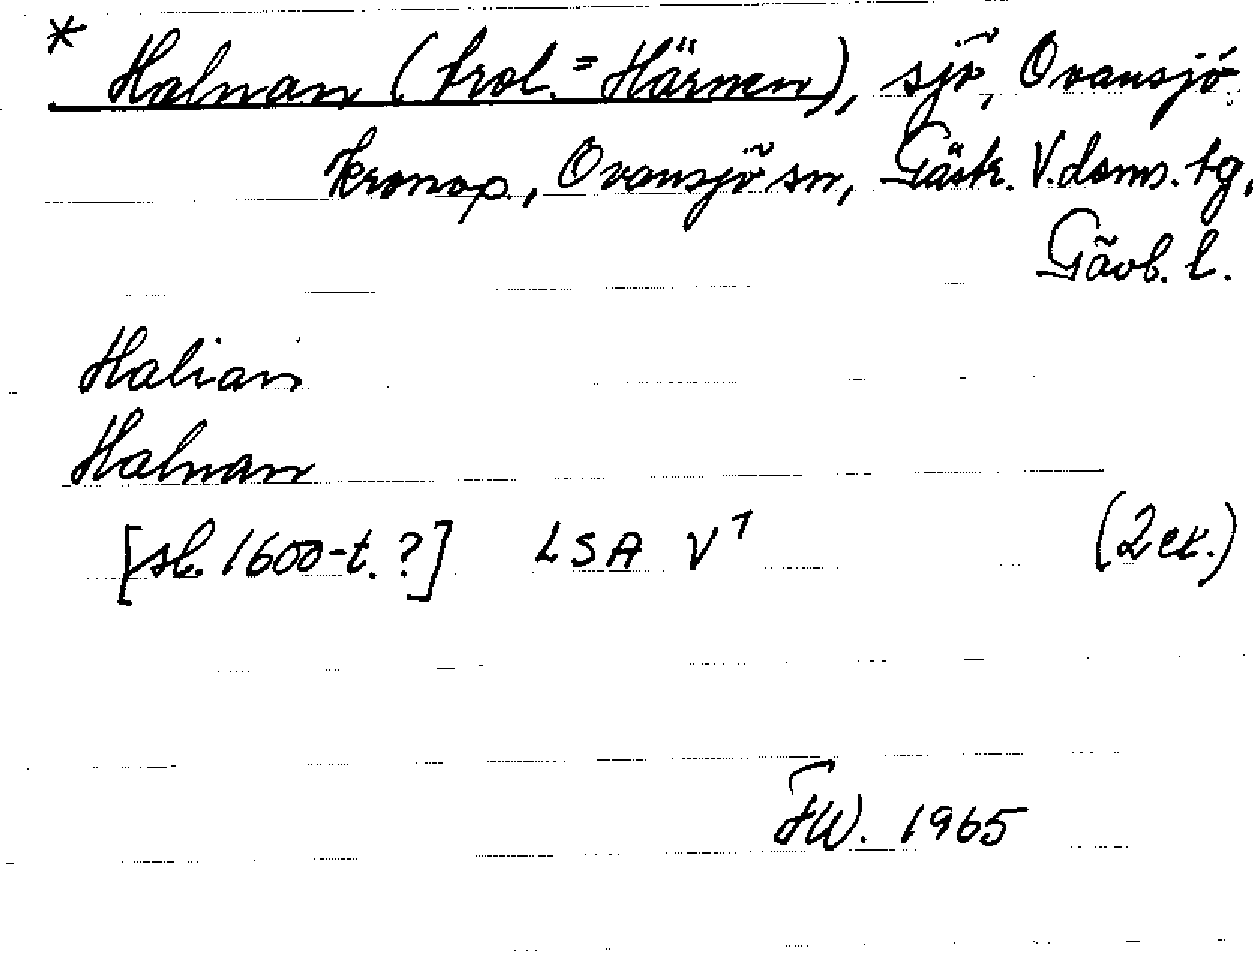 * Halnan (trol. = Härnen), sjö, Ovansjö
kronop, Ovansjö sn, Gästr. V. doms. tg,
Gävb. l.
Halian
Halnan
[sl. 1600-t. ?] LSA V 1 (2 ex.)
FW. 1965